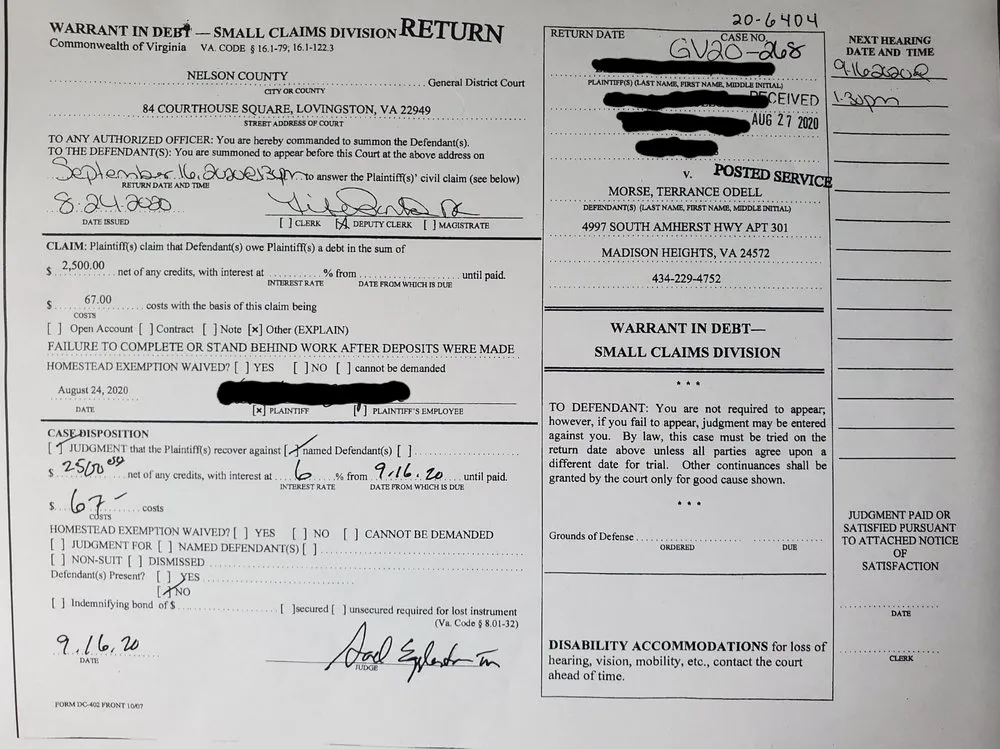 WARRANT IN DEBT — SMALL CLAIMS DIVISION RETURN
Commonwealth of Virginia VA. CODE § 16.1-79; 16.1-122.3
NELSON COUNTY
General District Court
CITY OR COUNTY
84 COURTHOUSE SQUARE, LOVINGSTON, VA 22949
STREET ADDRESS OF COURT
TO ANY AUTHORIZED OFFICER: You are hereby commanded to summon the Defendant(s).
TO THE DEFENDANT(S): You are summoned to appear before this Court at the above address on
September 16, 2020 to answer the Plaintiff(s)' civil claim (see below)
RETURN DATE AND TIME
8-24-2020
DATE ISSUED
[ ] CLERK [X] DEPUTY CLERK [ ] MAGISTRATE
CLAIM: Plaintiff(s) claim that Defendant(s) owe Plaintiff(s) a debt in the sum of
$ 2,500.00 net of any credits, with interest at % from until paid.
INTEREST RATE DATE FROM WHICH IS DUE
$ 67.00 costs with the basis of this claim being
COSTS
[ ] Open Account [ ] Contract [ ] Note [x] Other (EXPLAIN)
FAILURE TO COMPLETE OR STAND BEHIND WORK AFTER DEPOSITS WERE MADE
HOMESTEAD EXEMPTION WAIVED? [ ] YES [ ] NO [ ] cannot be demanded
August 24, 2020
DATE
[x] PLAINTIFF [ ] PLAINTIFF'S EMPLOYEE
CASE DISPOSITION
[X] JUDGMENT that the Plaintiff(s) recover against [X] named Defendant(s) [ ]
$ 2500 net of any credits, with interest at 6 % from 9.16.20 until paid.
INTEREST RATE DATE FROM WHICH IS DUE
$ 67- costs
COSTS
HOMESTEAD EXEMPTION WAIVED? [ ] YES [ ] NO [ ] CANNOT BE DEMANDED
[ ] JUDGMENT FOR [ ] NAMED DEFENDANT(S) [ ]
[ ] NON-SUIT [ ] DISMISSED
Defendant(s) Present? [ ] YES
[X] NO
[ ] Indemnifying bond of $ [ ]secured [ ] unsecured required for lost instrument
(Va. Code § 8.01-32)
9.16.20
DATE
JUDGE
FORM DC-402 FRONT 10/07
20-6404
RETURN DATE CASE NO.
GV20-268
PLAINTIFF(S) (LAST NAME, FIRST NAME, MIDDLE INITIAL)
RECEIVED
AUG 27 2020
v. POSTED SERVICE
MORSE, TERRANCE ODELL
DEFENDANT(S) (LAST NAME, FIRST NAME, MIDDLE INITIAL)
4997 SOUTH AMHERST HWY APT 301
MADISON HEIGHTS, VA 24572
434-229-4752
WARRANT IN DEBT—
SMALL CLAIMS DIVISION
* * *
TO DEFENDANT: You are not required to appear;
however, if you fail to appear, judgment may be entered
against you. By law, this case must be tried on the
return date above unless all parties agree upon a
different date for trial. Other continuances shall be
granted by the court only for good cause shown.
* * *
Grounds of Defense
ORDERED DUE
DISABILITY ACCOMMODATIONS for loss of
hearing, vision, mobility, etc., contact the court
ahead of time.
NEXT HEARING
DATE AND TIME
9-16-2020
1:30pm
JUDGMENT PAID OR
SATISFIED PURSUANT
TO ATTACHED NOTICE
OF
SATISFACTION
DATE
CLERK